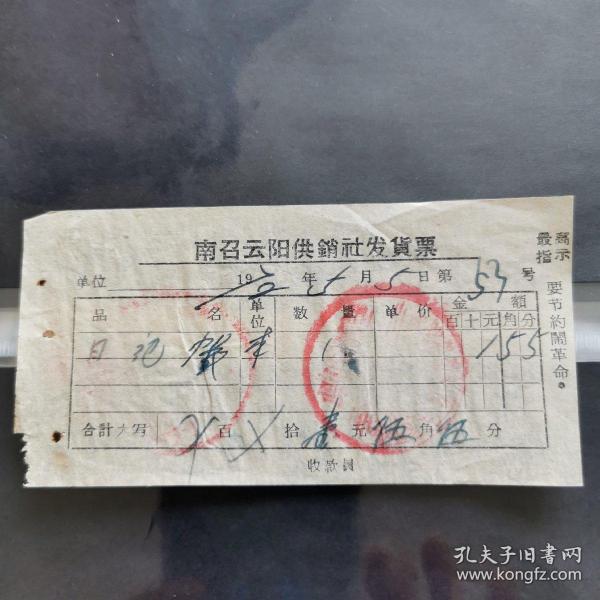 南召云阳供銷社发貨票
单位 19 年 5月5日第 53 号
品 名 单位 数 量 单 价 金 額
百 十 元 角 分
日 记 本 1 1 5 5
合計大写 X 百 X 拾 壹 元 伍 角 伍 分
收款員
最高指示
要节約鬧革命。
孔夫子旧书网
www.kongfz.com